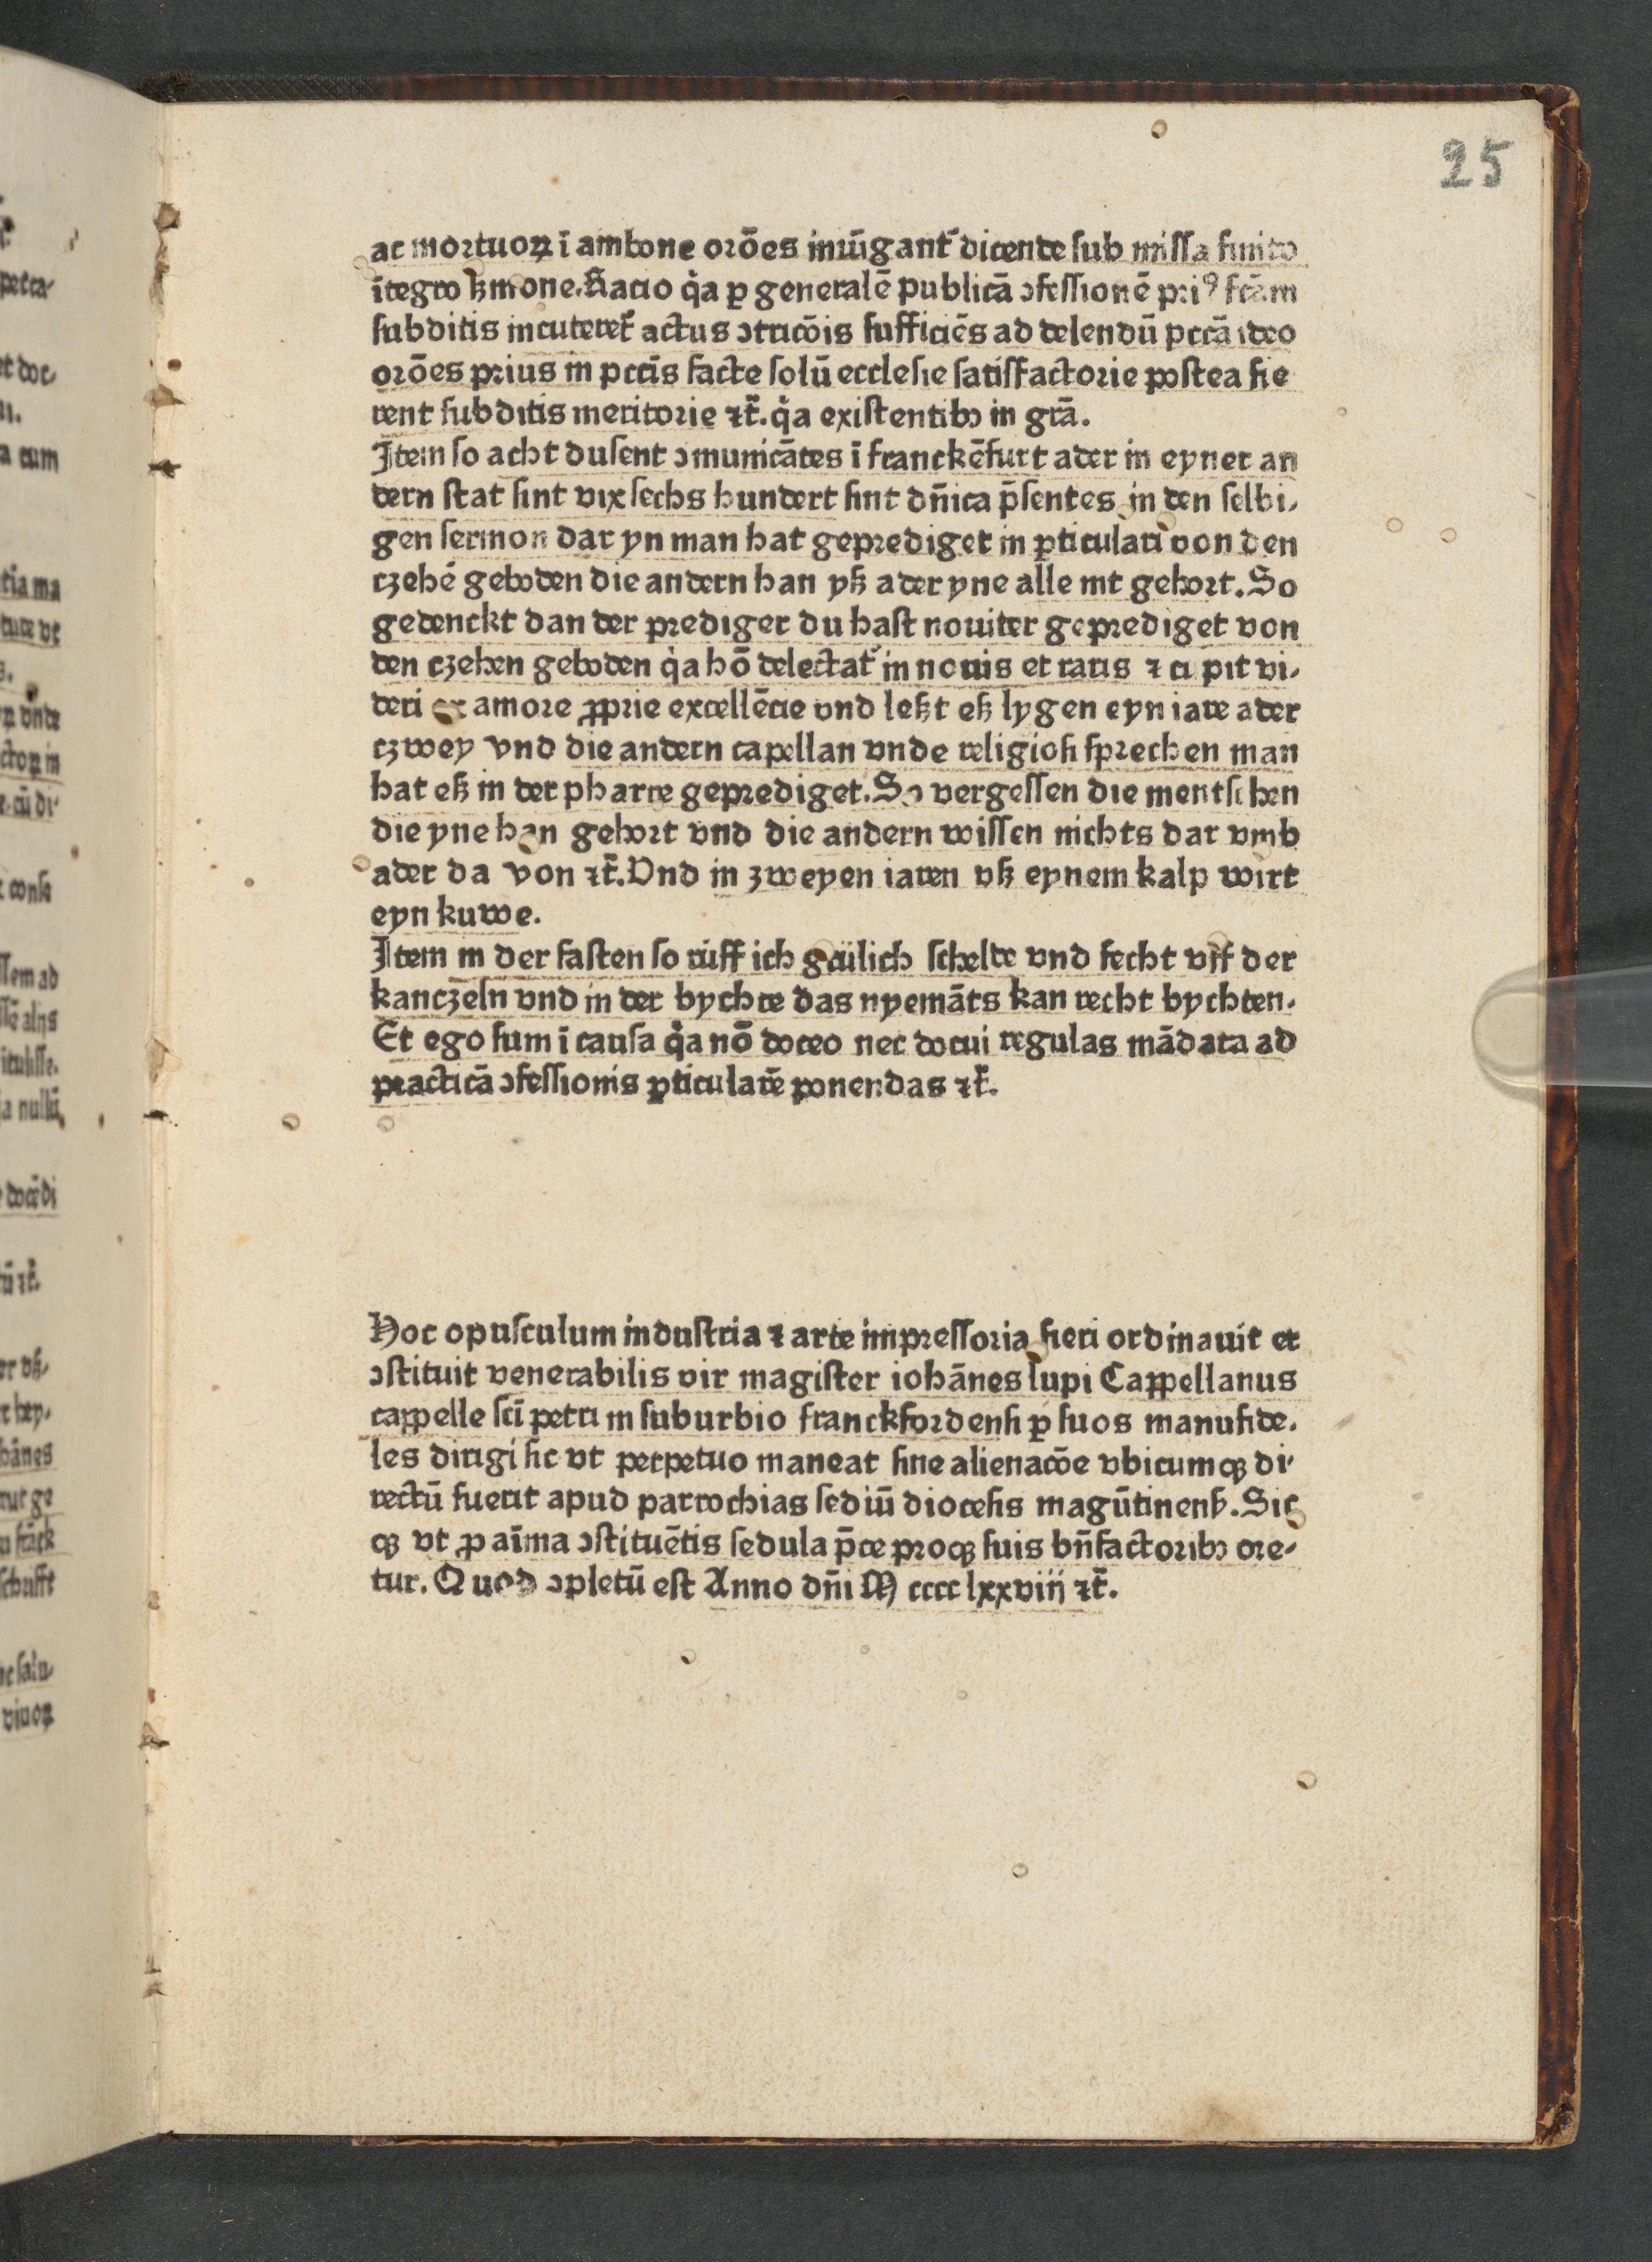 25
ac mortuoꝝ ī ambone orōes iniūgant᷑ dicende sub missa finito
ītegro ẞmone. Racio q̇a ꝑ generalē publicā ↄfessionē pri⁹ fc̄am
subditis incuteret᷑ actus ↄtricōis sufficiēs ad delendū pctā ideo
orōes prius in pctīs facte solū ecclesie satisfactorie postea fie
rent subditis meritorie ⁊c̄. q̇a existentibꝫ in grā.
Item so acht dusent ↄmunicātes ī franckēfurt ader in eyner an
dern stat sint vix sechs hundert sint dn̄ica p̄sentes in den selbi⸗
gen sermon dar yn man hat geprediget in ꝑticulari von den
czehē geboden die andern han yß ader yne alle nit gehort. So
gedenckt dan der prediger du hast nouiter geprediget von
den czehen geboden q̇a hō delectat᷑ in nouis et raris ⁊ cupit vi⸗
deri ex amore ꝓprie excellēcie vnd leßt eß lygen eyn iare ader
czwey vnd die andern capellan vnde religiosi sprechen man
hat eß in der pharre geprediget. So vergessen die mentschen
die yne han gehort vnd die andern wissen nichts dar vmb
ader da von ⁊c̄. Vnd in zweyen iaren vß eynem kalp wirt
eyn kuwe.
Item in der fasten so ruff ich grülich schelte vnd fecht vff der
kanczeln vnd in der bychte das nyemāts kan recht bychten.
Et ego sum ī causa q̇a nō doceo nec docui regulas mādata ad
practicā ↄfessionis ꝑticularē ponendas ⁊c̄.
Hoc opusculum industria ⁊ arte impressoria fieri ordinauit et
ↄstituit venerabilis vir magister iohānes lupi Cappellanus
cappelle scī petri in suburbio franckfordensi ꝑ suos manufide⸗
les dirigi sic vt perpetuo maneat sine alienacōe vbicumqꝫ di⸗
rectū fuerit apud parrochias sediū diocesis magūtinenß. Sic
qꝫ vt ꝓ aīma ↄstituētis sedula p̄ce proqꝫ suis bn̄factoribꝫ ore⸗
tur. Quod ↄpletū est Anno dn̄i M cccc lxxviij ⁊c̄.